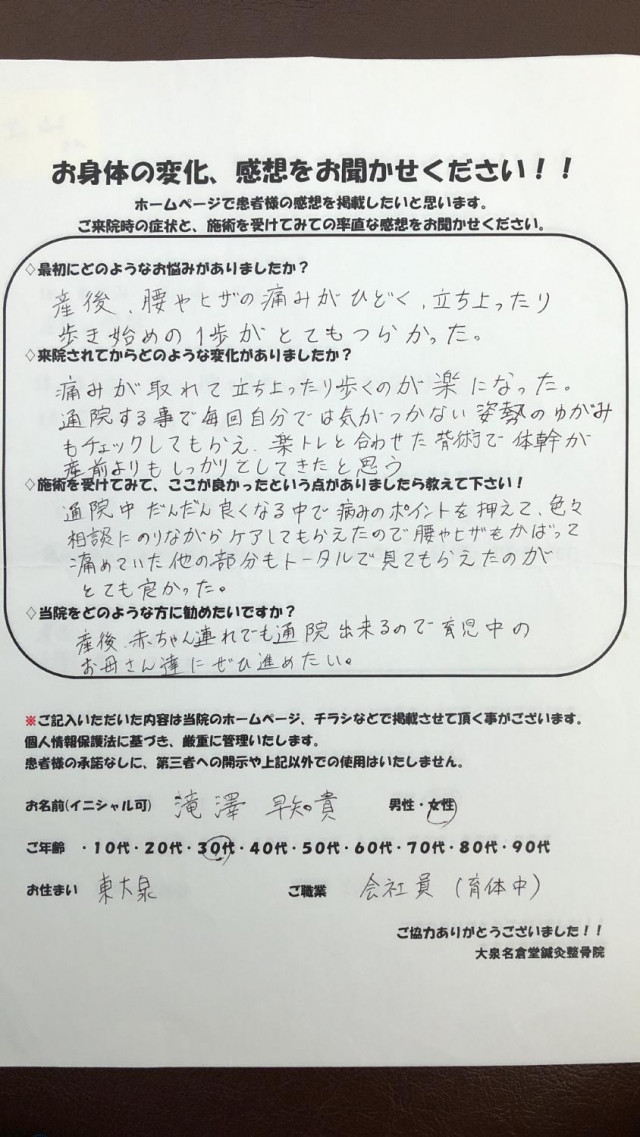 お身体の変化、感想をお聞かせください！！
ホームページで患者様の感想を掲載したいと思います。
ご来院時の症状と、施術を受けてみての率直な感想をお聞かせください。
◇最初にどのようなお悩みがありましたか？
産後、腰やヒザの痛みがひどく、立ち上ったり
歩き始めの1歩がとてもつらかった。
◇来院されてからどのような変化がありましたか？
痛みが取れて立ち上ったり歩くのが楽になった。
通院する事で毎回自分では気がつかない姿勢のゆがみ
もチェックしてもらえ、楽トレと合わせた背術で体幹が
産前よりもしっかりとしてきたと思う
◇施術を受けてみて、ここが良かったという点がありましたら教えて下さい！
通院中だんだん良くなる中で病みのポイントを押えて、色々
相談にのりながらケアしてもらえたので腰やヒザをかばって
痛めていた他の部分もトータルで見てもらえたのが
とても良かった。
◇当院をどのような方に勧めたいですか？
産後、赤ちゃん連れでも通院出来るので育児中の
お母さん達にぜひ進めたい。
※ご記入いただいた内容は当院のホームページ、チラシなどで掲載させて頂く事がございます。
個人情報保護法に基づき、厳重に管理いたします。
患者様の承諾なしに、第三者への開示や上記以外での使用はいたしません。
お名前(イニシャル可) 滝澤 早知貴 男性・女性
ご年齢 ・10代・20代・30代・40代・50代・60代・70代・80代・90代
お住まい 東大泉 ご職業 会社員（育体中）
ご協力ありがとうございました！！
大泉名倉堂鍼灸整骨院